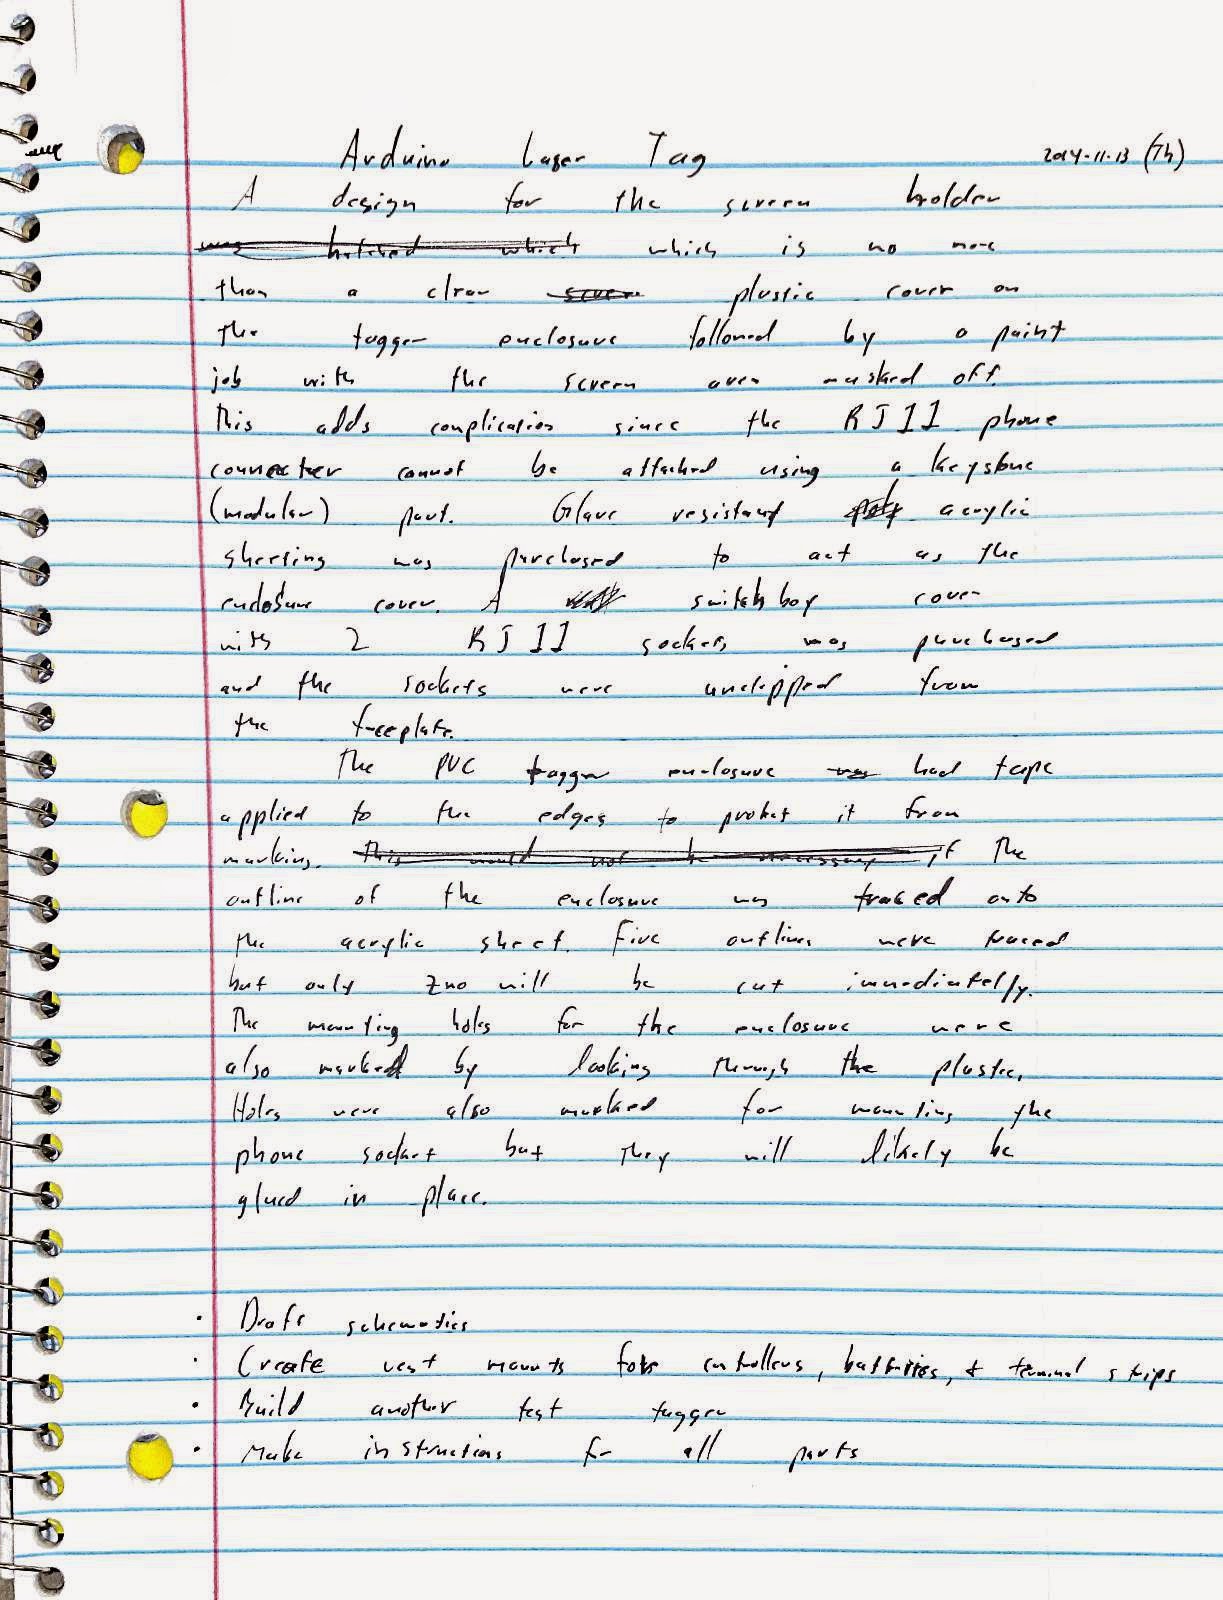 Arduino Laser Tag 2014-11-13 (Th)
A design for the screen holder
was hatched which which is no more
than a clear screen plastic cover on
the tagger enclosure followed by a paint
job with the screen area masked off.
This adds complication since the RJ11 phone
connecter cannot be attached using a keystone
(modular) part. Glare resistant poly acrylic
sheeting was purchased to act as the
enclosure cover. A switch box cover
with 2 RJ11 sockets was purchased
and the sockets were unclipped from
the faceplate.
The PVC tagger enclosure was had tape
applied to the edges to protect it from
marking. This would not be necessary if The
outline of the enclosure was traced onto
the acrylic sheet. Five outlines were traced
but only two will be cut immediately.
The mounting holes for the enclosure were
also marked by looking through the plastic.
Holes were also marked for mounting the
phone socket but they will likely be
glued in place.
· Draft schematics
· Create vest mounts for controllers, batteries, + terminal strips
· Build another test tagger
· Make instructions for all parts